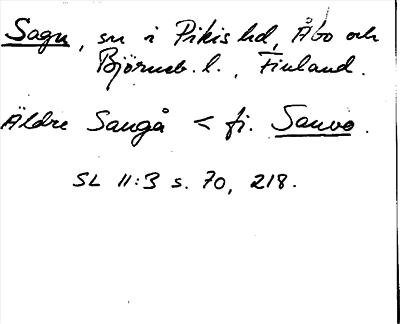 Sagu, sn i Pikis hd, Åbo och
Björneb. l., Finland.
Äldre Sangå < fi. Sauvo.
SL 11:3 s. 70, 218.